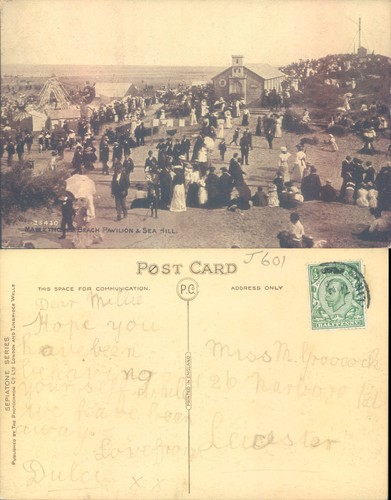 29420
MABLETHORPE BEACH PAVILION & SEA HILL.
POST CARD
J601
THIS SPACE FOR COMMUNICATION.
P.C
ADDRESS ONLY
HALFPENNY
SEPIATONE SERIES
PUBLISHED BY THE PHOTOCHROM CO LTD LONDON AND TUNBRIDGE WELLS
PRINTED IN ENGLAND
Dear Millie
Hope you
have been
behaving
your
we have been
away.
Love from
Dulcie
xx
Miss M. Groocock
126
Leicester